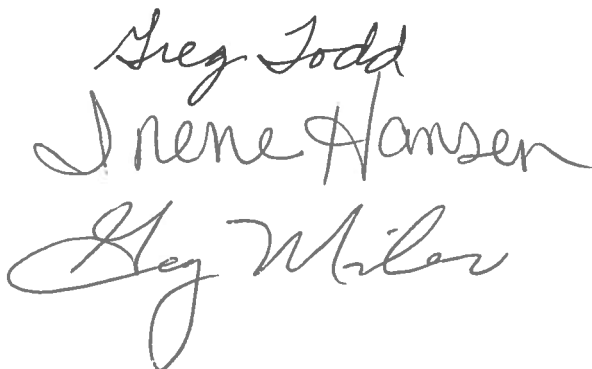 Greg Todd
Irene Hansen
Greg Miler